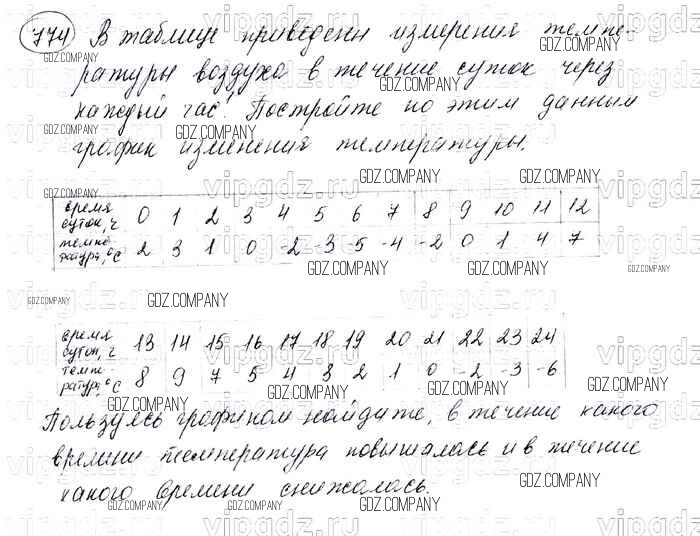 774 В таблице приведены измерения темпе-
ратуры воздуха в течение суток через
каждый час. Постройте по этим данным
график изменения температуры.
время суток, ч 0 1 2 3 4 5 6 7 8 9 10 11 12
темпе-ратура, °С 2 3 1 0 -2 -3 -5 -4 -2 0 1 4 7
время суток, ч 13 14 15 16 17 18 19 20 21 22 23 24
темпе-ратура, °С 8 9 7 5 4 3 2 1 0 -2 -3 -6
Пользуясь графиком найдите, в течение какого
времени температура повышалась и в течение
какого времени снижалась.
vipgdz.ru
GDZ.COMPANY